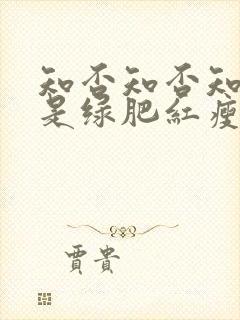 知否知否知
是绿肥紅瘦
賈貴